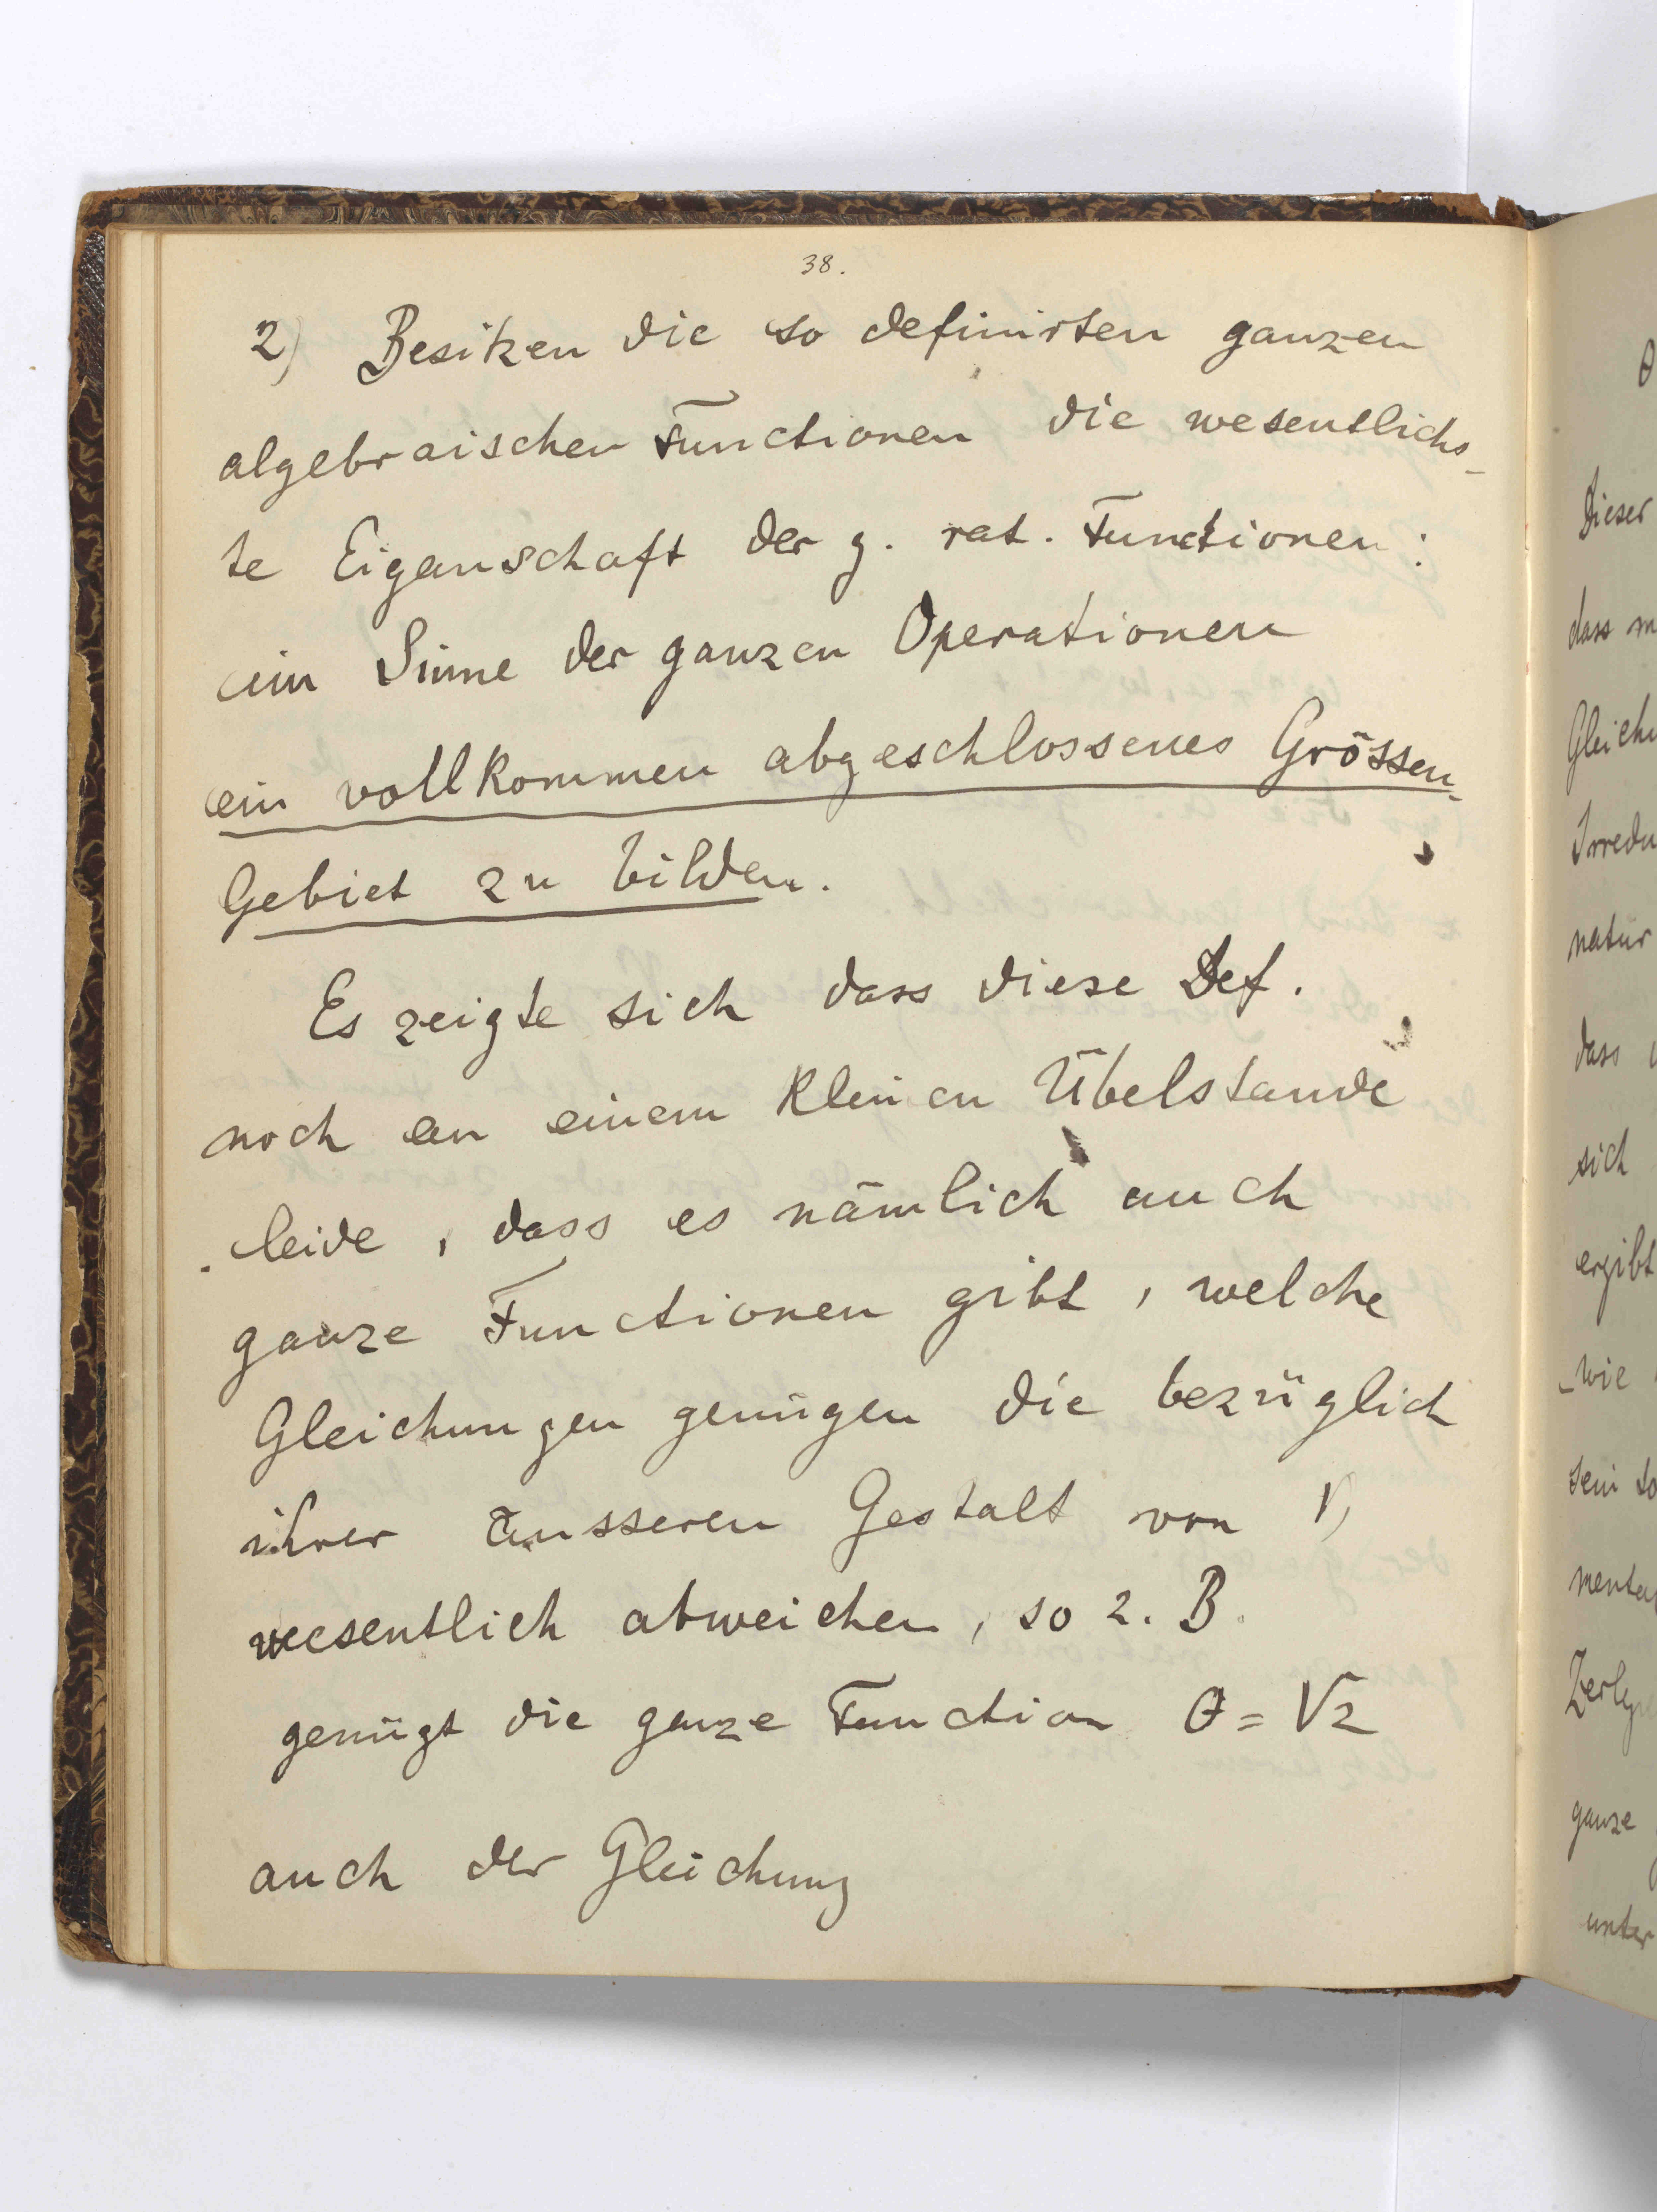 38.
2) Besitzen die so definirten ganzen
algebraischen Functionen die wesentlichs-
te Eigenschaft der g. rat. Functionen:
im Sinne der ganzen Operationen
ein vollkommen abgeschlossenes Grössen-
Gebiet zu bilden.
Es zeigte sich dass diese Def.
noch an einem kleinen Übelstande
leide, dass es nämlich auch
ganze Functionen gibt, welche
Gleichungen genügen die bezüglich
ihrer äusseren Gestalt von 1)
wesentlich abweichen, so z. B.
genügt die ganze Function θ = √z
auch der Gleichung
θ
Dieser
dass
Gleichu
Irredu
natür
dass
sich
ergibt
wie
sein so
menta
Zerleg
ganze
unter